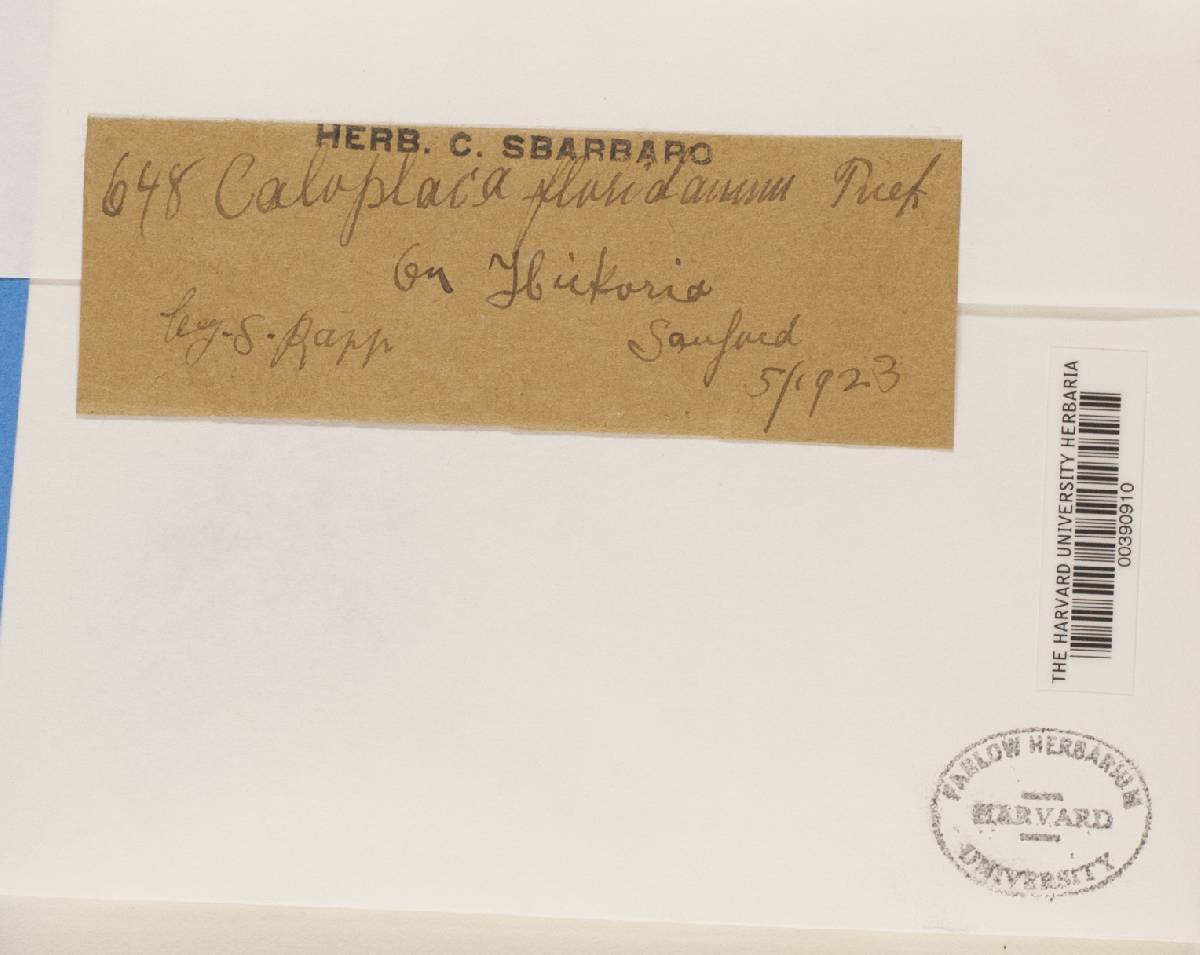 HERB. C. SBARBARO
648 Caloplaca floridanum Tuck
On Hickoria
leg. S. Rapp Sanford
5/1923
THE HARVARD UNIVERSITY HERBARIA
00390910
FARLOW HERBARIUM
HARVARD
UNIVERSITY